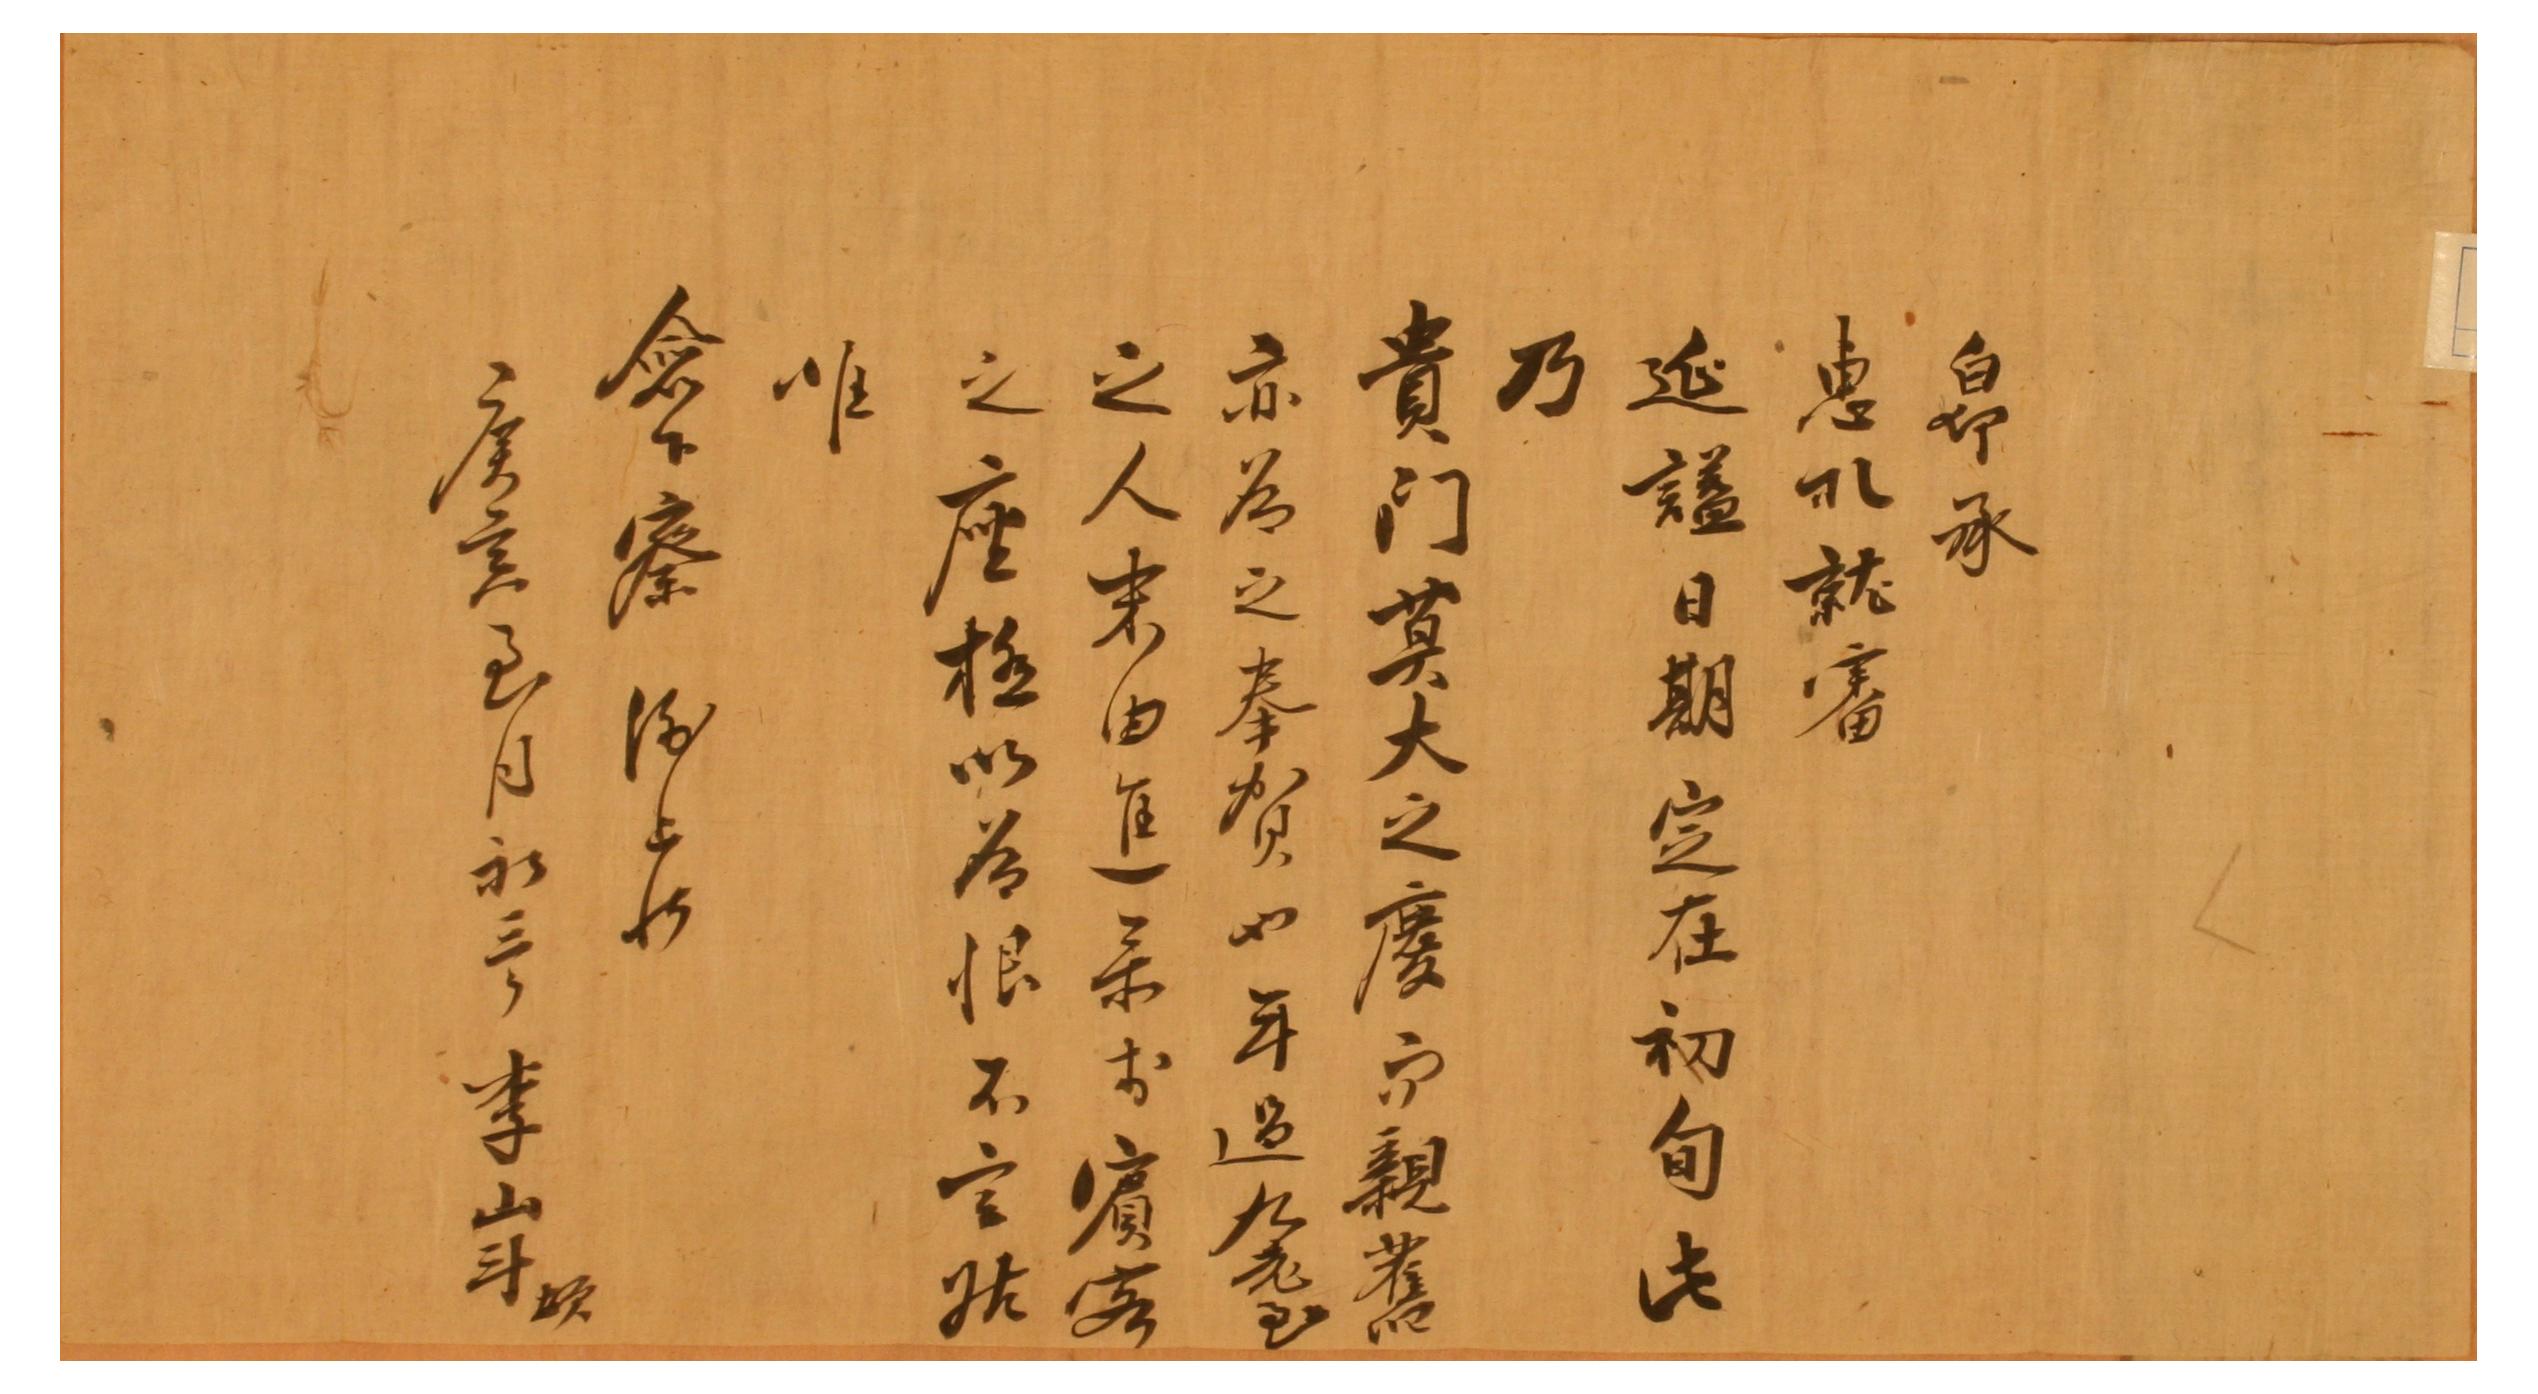 承
惠札就審
延諡日期定在初旬此
乃
貴門莫大之慶而親舊
亦爲之奉賀如年過九耋
之人末由進參於賓客
之座極以爲恨不宣姑
惟
僉下察 謝上狀
庚寅至月初三日 李山斗 頓